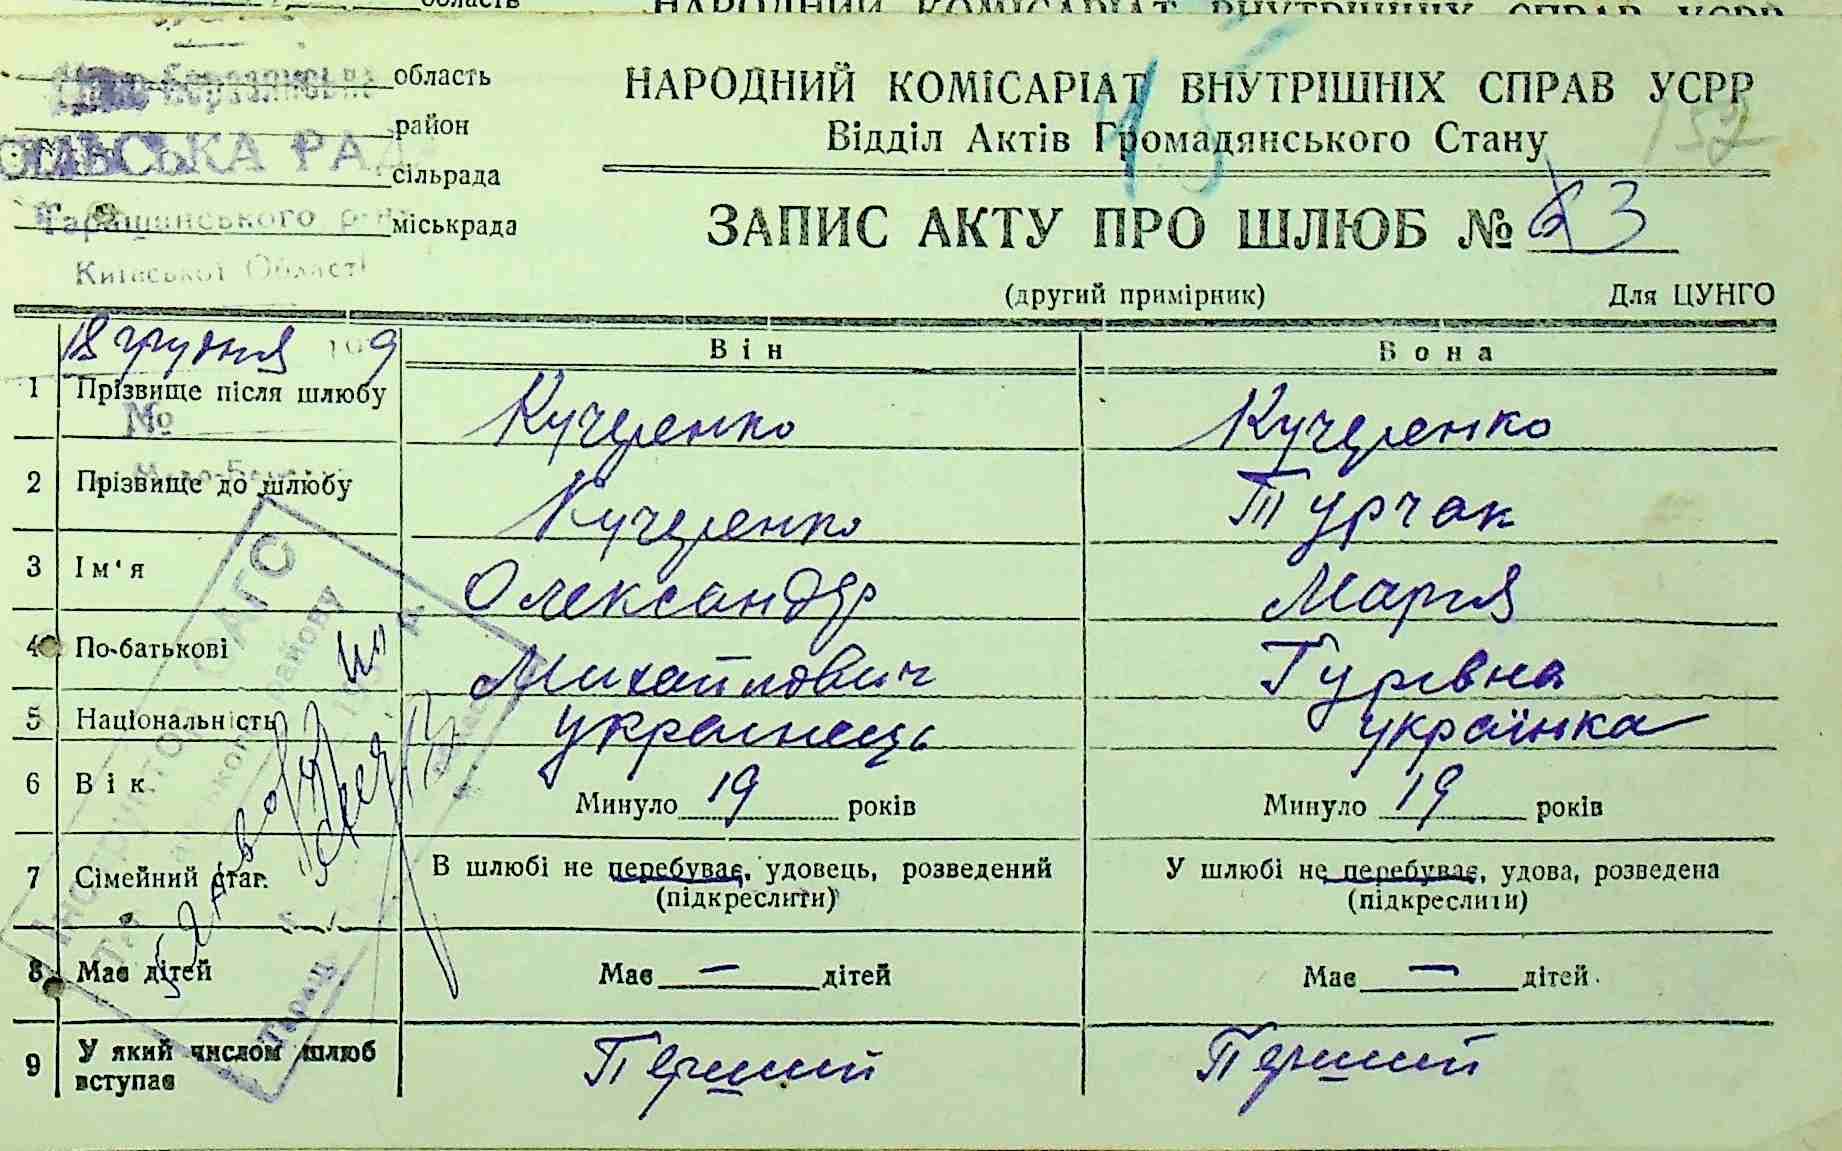 область
НАРОДНИЙ КОМІСАРІАТ ВНУТРІШНІХ СПРАВ УСРР
область
НАРОДНИЙ КОМІСАРІАТ ВНУТРІШНІХ СПРАВ УСРР
45
152
район
Відділ Актів Громадянського Стану
СІЛЬСЬКА РАДА
сільрада
Таращанського
міськрада
ЗАПИС АКТУ ПРО ШЛЮБ № 63
Київської Області
(другий примірник) Для ЦУНГО
18 грудня 9
Він Вона
1 Прізвище після шлюбу Кучеренко Кучеренко
№
2 Прізвище до шлюбу Кучеренко Турчак
3 Ім'я Олександр Марія
4 По-батькові Михайлович Гурівна
5 Національність українець українка
6 Вік Минуло 19 років Минуло 19 років
7 Сімейний стан В шлюбі не перебуває, удовець, розведений У шлюбі не перебуває, удова, розведена
(підкреслити) (підкреслити)
8 Має дітей Має — дітей Має — дітей
9 У який числом шлюб вступає Перший Перший
Інструктор ОАГС